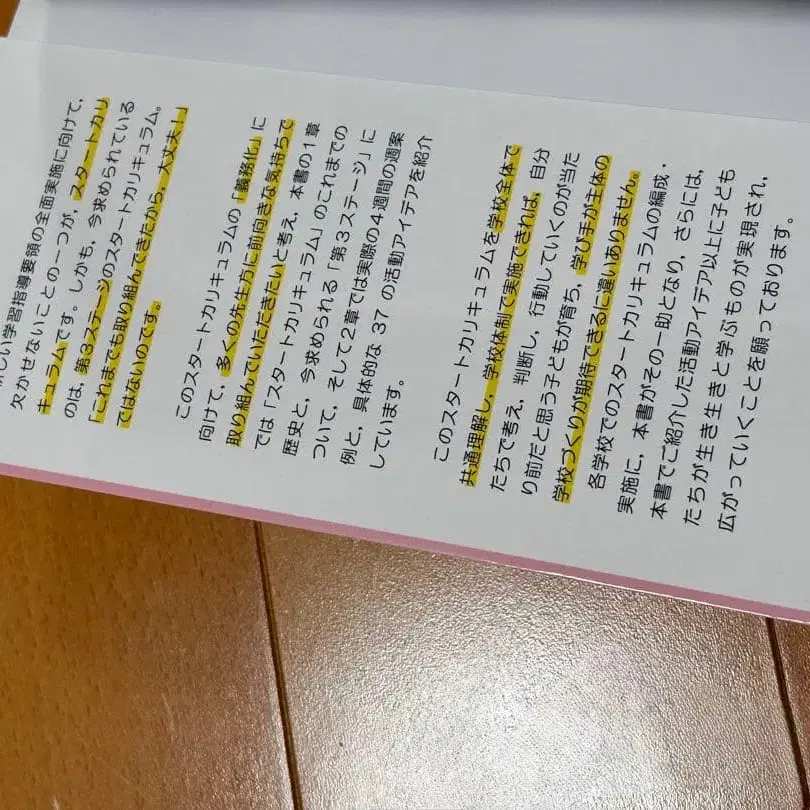 しい学習指導要領の全面実施に向けて,
欠かせないことの一つが,スタートカリ
キュラムです。しかも,今求められている
のは,第3ステージのスタートカリキュラム。
「これまでも取り組んできたから,大丈夫!」
ではないのです。
このスタートカリキュラムの「義務化」に
向けて,多くの先生方に前向きな気持ちで
取り組んでいただきたいと考え,本書の1章
では「スタートカリキュラム」のこれまでの
歴史と,今求められる「第3ステージ」に
ついて,そして2章では実際の4週間の週案
例と,具体的な 37 の活動アイデアを紹介
しています。
このスタートカリキュラムを学校全体で
共通理解し,学校体制で実施できれば,自分
たちで考え,判断し,行動していくのが当た
り前だと思う子どもが育ち,学び手が主体の
学校づくりが期待できるに違いありません。
各学校でのスタートカリキュラムの編成・
実施に,本書がその一助となり,さらには,
本書でご紹介した活動アイデア以上に子ども
たちが生き生きと学ぶものが実現され,
広がっていくことを願っております。